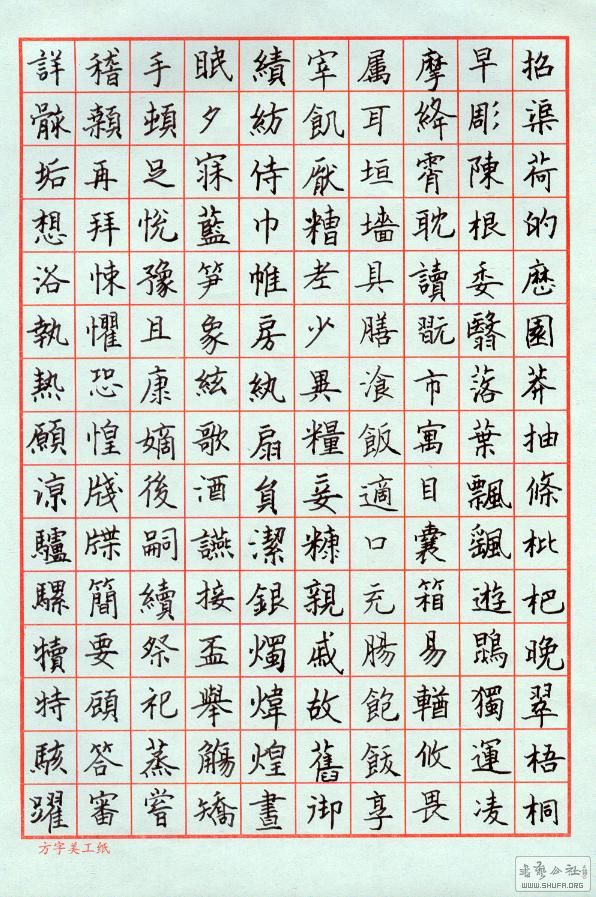 招渠荷的歷園莽抽條枇杷晚翠梧桐
早彫陳根委翳落葉飄颻遊鵾獨運凌
摩絳霄耽讀翫市寓目囊箱易輶攸畏
属耳垣墻具膳飡飯適口充腸飽飫享
宰飢厭糟老少異糧妾糠親戚故舊御
績紡侍巾帷房紈扇員潔銀燭煒煌晝
眠夕寐藍笋象絃歌酒讌接盃舉觴矯
手頓足悅豫且康嫡後嗣續祭祀蒸嘗
稽顙再拜悚懼恐惶牋牒簡要顧答審
詳骸垢想浴執熱願涼驢騾犢特駭躍
方字美工纸
书艺公社
WWW.SHUFA.ORG